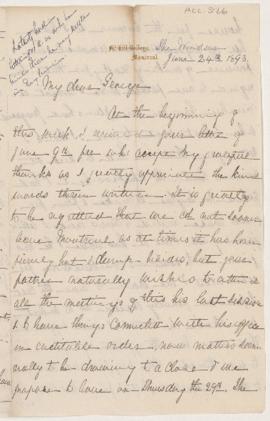 ACC. 566
McGill College,
Montreal
The Windsor
June 24th 1893.
My dear George
At the beginning of
this week I received your letter of
June 9th for who accept my grateful
thanks as I greatly appreciate the kind
words therein written. It is greatly
to be regretted that we can not sooner
leave Montreal as at times it has been
very hot & damp besides, but your
father naturally wishes to attend
all the meetings of this his last session
& to have things connected with his office
in creditable order, now matters seem
really to be drawing to a close & we
propose to leave on Thursday the 29th. The